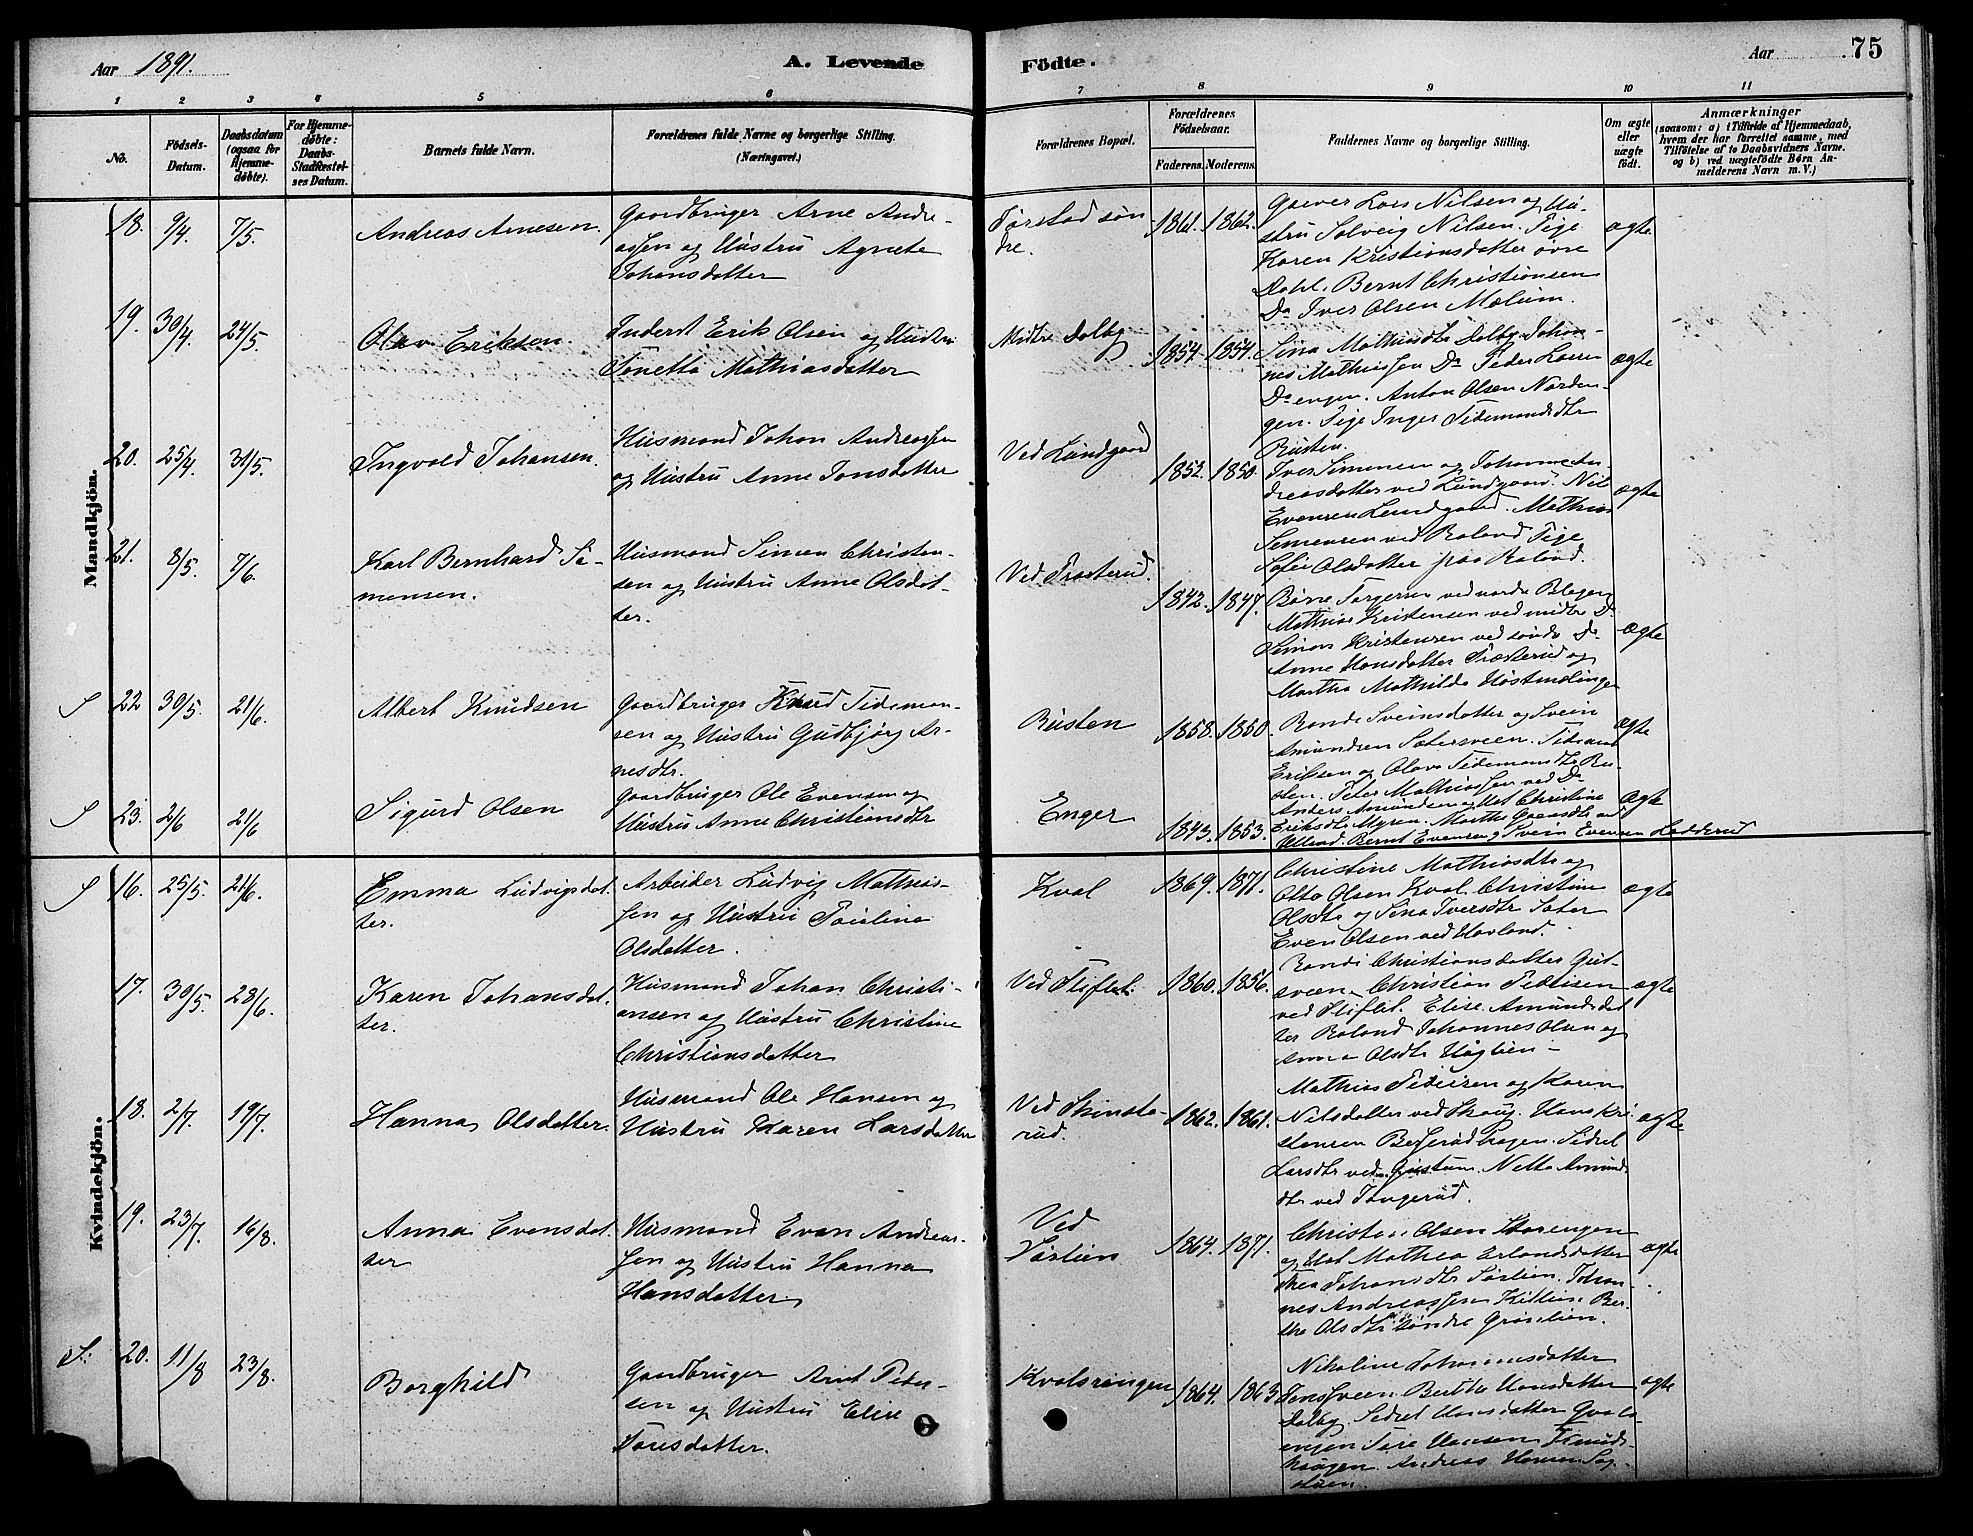 Aar 1891.
A. Levende
Födte.
Aar
75
1 2 3 4 5 6 7 8 9 10 11
No.
Födsels-
Datum.
Daabsdatum
(ogsaa for
Hjemme-
døbte).
For Hjemme-
døbte:
Daabs-
Stadfæstel-
ses Datum.
Barnets fulde Navn.
Forældrenes fulde Navne og borgerlige Stilling.
(Næringsvei.)
Forældrenes Bopæl.
Forældrenes
Födselsaar.
Faderens. Moderens.
Faddernes Navne og borgerlige Stilling.
Om ægte
eller
uægte
født.
Anmærkninger
(saasom: a) i Tilfælde af Hjemmedaab,
hvem der har forrettet samme, med
Tilføielse af to Daabsvidners Navne.
og b) ved uægtefödte Börn An-
melderens Navn m.V.)
Mandkjön.
18. 9/4 7/5. Andreas Arnesen.
Gaardbruger Arne Andre-
assen og Hustru Agnete
Johansdatter
Tørstad søn-
dre.
1861. 1862.
Lars Nilsen og Hu-
stru Solveig Nilsen. Pige
Karen Kristiansdatter øvre
Dahl. Bernt Christiansen
Do Iver Olsen Melum.
ægte
19. 30/4 24/5. Olav Eriksen.
Inderst Erik Olsen og Hustru
Tonetta Mathiasdatter
Midtre Dalby
1854. 1854.
Sina Mathiasdtr Dalby. Johan-
nes Mathiassen Do Peder Lauren
Do engen. Anton Olsen Norden-
gen. Pige Inger Tidemandsdtr
Rusten.
ægte
20. 25/4 31/5. Ingvald Johansen.
Husmand Johan Andreassen
og Hustru Anne Jonsdatter
Ved Lundgaard
1852. 1850.
Iver Simensen og Johanne An-
dreasdatter ved Lundgaard. Nils
Evensen Lundgaard. Mathias
Simensen ved Roland Pige
Sofie Olsdatter paa Roland.
ægte
21. 8/5. 7/6. Karl Bernhard Si-
mensen.
Husmand Simen Christen-
sen og Hustru Anne Olsdat-
ter.
Ved Prosterud.
1842. 1847.
Torgersen ved nordre
Mathias Kristensen ved midtre Do
Simon Kristensen ved søndr Do
Anne Hansdatter Præsterud og
Martha Mathilde
ægte
S 22 30/5. 21/6. Albert Knudsen
Gaardbruger Knud Tideman-
sen og Hustru Gudbjørg Ar-
nesdtr.
Rusten
1858. 1850.
Rande Sveinsdatter og Svein
Amundsen Sætersveen.
Eriksen og Olava Tidemansdtr Ru-
sten. Peter Mathiassen ved Do
ægte
S 23. 2/6 21/6 Sigurd Olsen
Gaardbruger Ole Evensen og
Hustru Anne Christiansdtr
Enger
1843. 1853.
Anders Amundsen og Hst Christine
Eriksdtr Myren. Marthe
Bernt Evensen og Svein Evensen Ladderud
ægte
Kvindekjön.
S 16. 25/5. 21/6. Emma Ludvigsdat-
ter.
Arbeider Ludvig Mathias-
sen og Hustru Pauline
Olsdatter.
Kval
1869. 1871.
Christine Mathiasdtr og
Otto Olsen Kval. Christine
Olsdtr og Sina Iversdtr Sater
Even Olsen ved Hovland.
ægte
17. 30/5. 28/6. Karen Johansdat-
ter.
Husmand Johan Christi-
ansen og Hustru Christine
Christiansdatter
Ved Fliflet.
1860. 1856.
Randi Christiansdatter Gud-
sveen. Christian Pedersen
ved Fliflet. Elise Amundsdat
ter Roland Johannes Olsen og
Anna Olsdtr Haglien -
ægte
18. 2/7. 19/7. Hanna Olsdatter.
Husmand Ole Hansen og
Hustru Karen Larsdatter
Ved Skinsta-
rud.
1862. 1861.
Mathias Pedersen og Karen
Nilsdatter ved Skaug. Hans Kri-
stensen Berserudhagen. Sidsel
Larsdtr ved Gustum. Netta Amunds
dtr ved Tangerud.
ægte
19. 23/7. 16/8. Anna Evensdat-
ter
Husmand Even Andreas-
sen og Hustru Hanna
Hansdatter.
Ved
Sørlien
1864. 1871.
Christen Olsen
og Hst Mathea Erlandsdatter
Thea Johansdtr Sørlien. Johan-
nes Andreassen Kitlien. Ber-
the Olsdtr søndre Grønlien.
ægte
S: 20. 11/8 23/8. Borghild
Gaardbruger Arnt Peder-
sen og Hustru Elise
Toresdatter.
Kvalsrengen
1864. 1863
Nikoline Johannesdatter
Jenssveen. Berthe Hansdatter
Dalby. Sidsel Hansdatter
engen Tore Hansen Knuds-
haugen. Andreas Hansen Sag-
stuen.
ægte